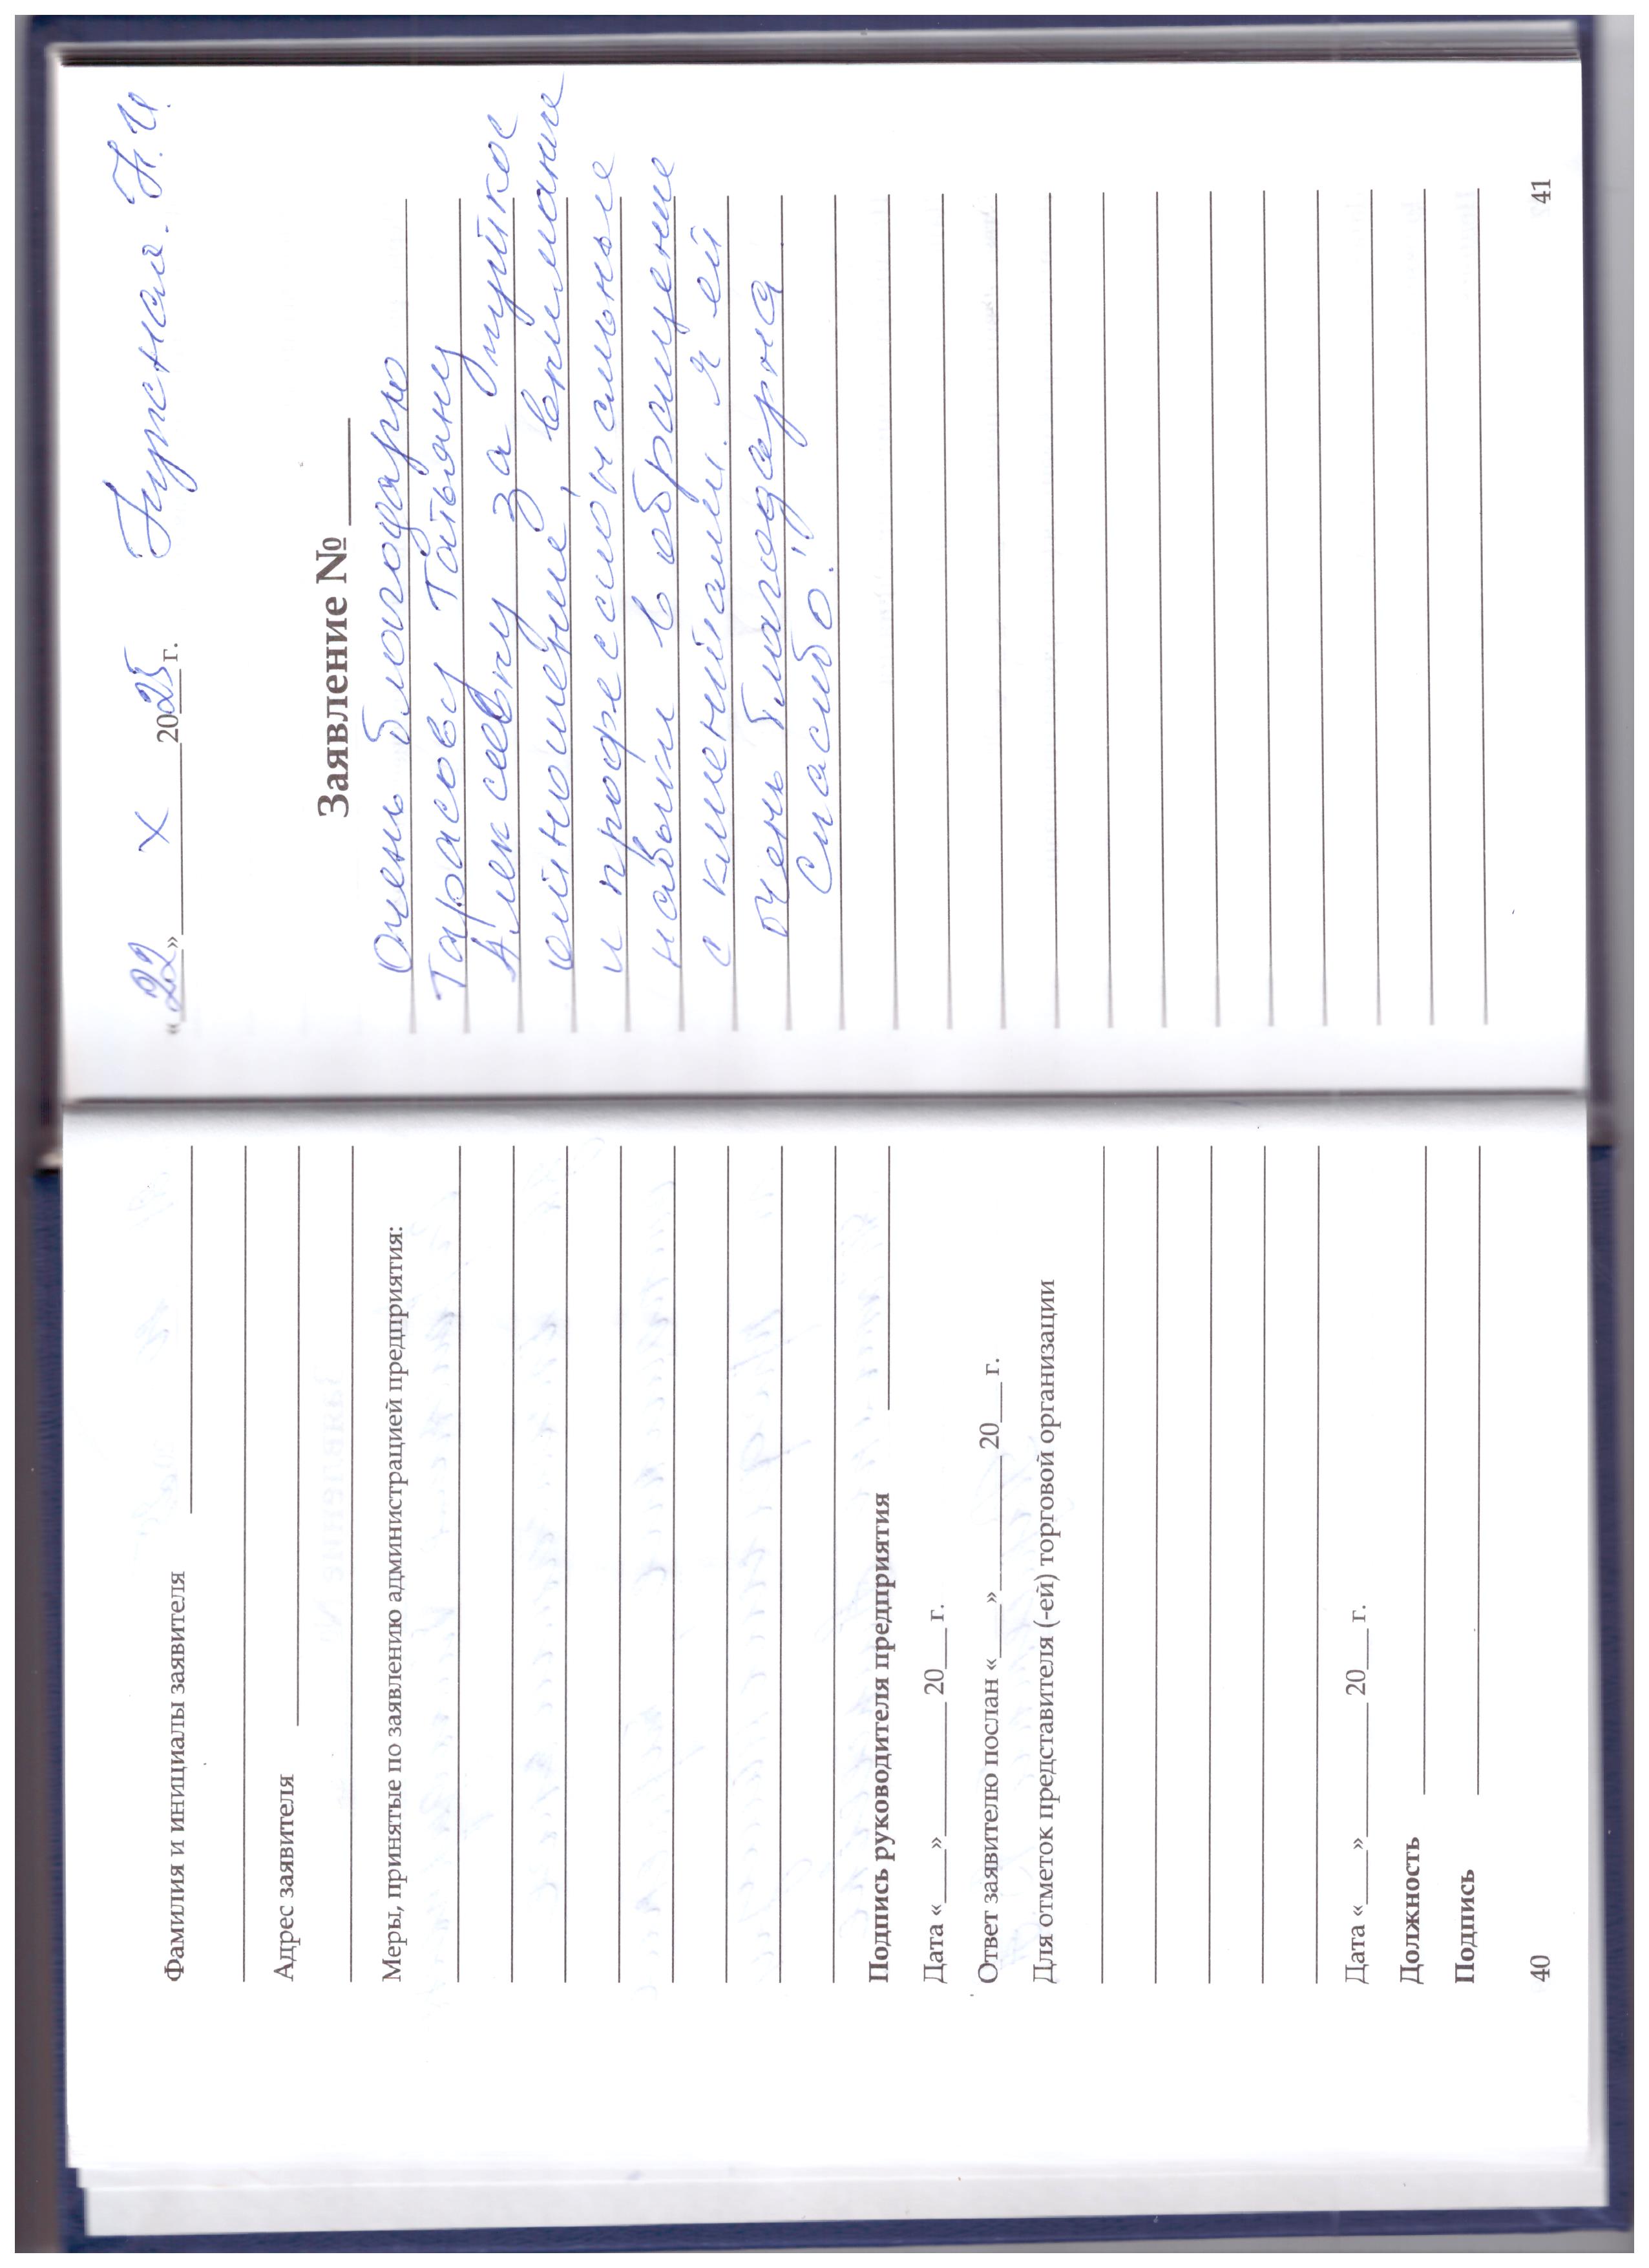 Фамилия и инициалы заявителя
Адрес заявителя
Меры, принятые по заявлению администрацией предприятия:
Подпись руководителя предприятия
Дата «___»________ 20___ г.
Ответ заявителю послан «___»________ 20___ г.
Для отметок представителя (-ей) торговой организации
Дата «___»________ 20___ г.
Должность
Подпись
40
«22» X 2025 г. Н.И.
Заявление №____
Очень благодарю
Тарасову Татьяну
Алексеевну за чуткое
отношение, внимание
и профессиональные
навыки в обращение
с клиентами. Я ей
очень благодарна
Спасибо!!
41